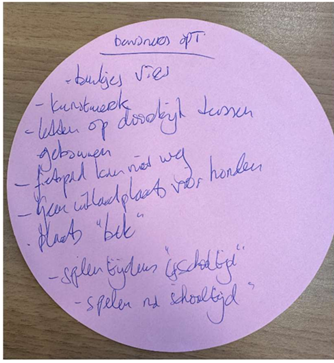 bewoners opT
- bankjes vies
- kunstwerk
- letten op doorkijk tussen
gebouwen
- fietspad kan niet weg
- geen uitlaatplaats voor honden
- plaats "bek"
- spelen tijdens "schooltijd"
- spelen na schooltijd"